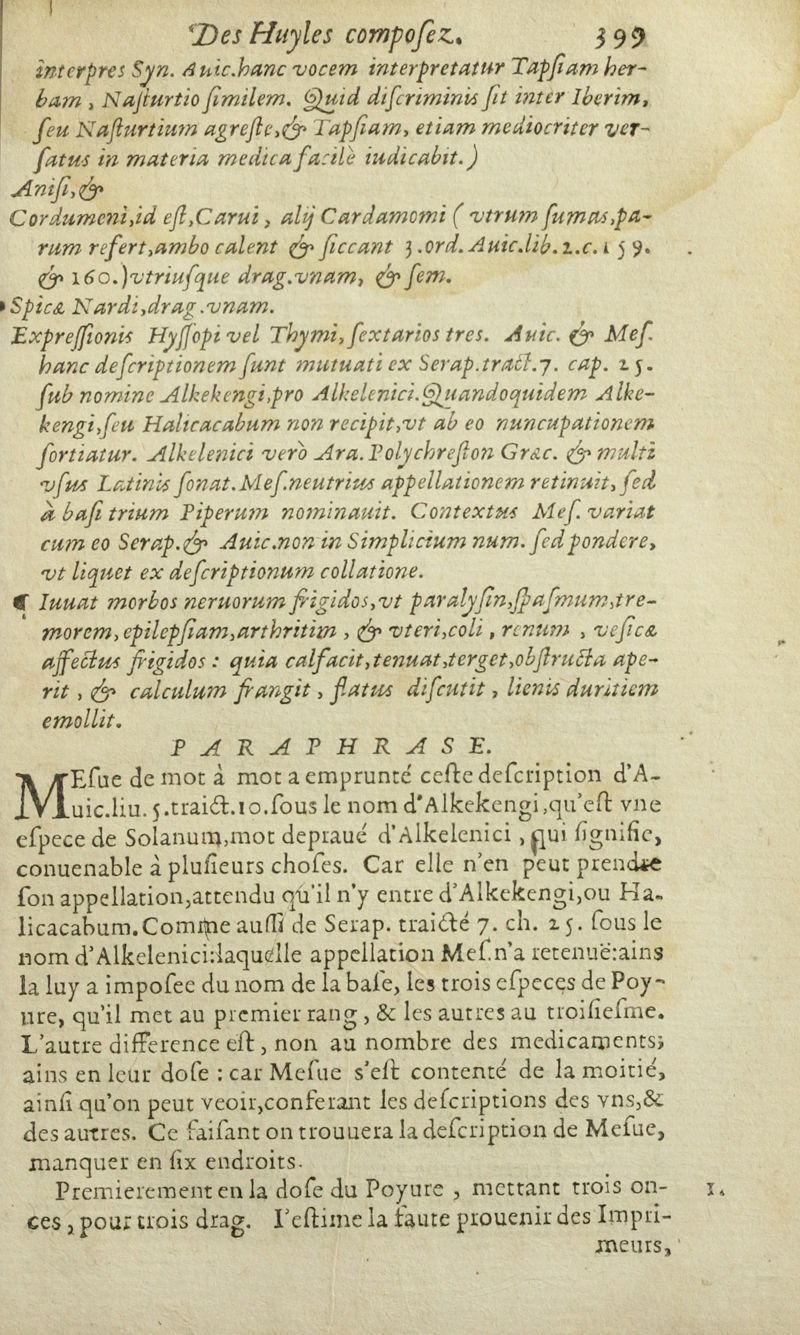 Des Huyles compoſez. 399
interpres Syn. Auic.hanc vocem interpretatur Tapſiam her-
bam , Naſturtio ſimilem. Quid diſcriminis ſit inter Iberim,
ſeu Naſturtium agreſte,& Tapſiam, etiam mediocriter ver-
ſatus in materia medica facilè iudicabit.)
Aniſi,&
Cordumeni,id eſt,Carui , alij Cardamomi ( vtrum ſumas,pa-
rum refert,ambo calent & ſiccant 3.ord. Auic.lib.2.c.159.
& 160.)vtriuſque drag.vnam, & ſem.
Spicæ Nardi,drag.vnam.
Expreſſionis Hyſſopi vel Thymi, ſextarios tres. Auic. & Meſ.
hanc deſcriptionem ſunt mutuati ex Serap.tract.7. cap. 25.
ſub nomine Alkekengi,pro Alkelenici.Quandoquidem Alke-
kengi,ſeu Halicacabum non recipit,vt ab eo nuncupationem
ſortiatur. Alkelenici verò Ara.Polychreſton Græc. & multi
vſus Latinis ſonat.Meſ.neutrius appellationem retinuit, ſed
à baſi trium Piperum nominauit. Contextus Meſ. variat
cum eo Serap.& Auic.non in Simplicium num. ſed pondere,
vt liquet ex deſcriptionum collatione.
¶ Iuuat morbos neruorum frigidos,vt paralyſin,ſpaſmum,tre-
morem, epilepſiam,arthritim , & vteri,coli , renum , veſicæ
affectus frigidos : quia calfacit,tenuat,terget,obſtructa ape-
rit , & calculum frangit , flatus diſcutit , lienis duritiem
emollit.
PARAPHRASE.
MEſue de mot à mot a emprunté ceſte deſcription d'A-
uic.liu. 5.traict.10.ſous le nom d'Alkekengi,qu'eſt vne
eſpece de Solanum,mot depraué d'Alkelenici , qui ſignifie,
conuenable à pluſieurs choſes. Car elle n'en peut prendre
ſon appellation,attendu qu'il n'y entre d'Alkekengi,ou Ha-
licacabum.Comme auſſi de Serap. traicté 7. ch. 25. ſous le
nom d'Alkelenici:laquelle appellation Meſ.n'a retenuë:ains
la luy a impoſee du nom de la baſe, les trois eſpeces de Poy-
ure, qu'il met au premier rang , & les autres au troiſieſme.
L'autre difference eſt , non au nombre des medicaments;
ains en leur doſe : car Meſue s'eſt contenté de la moitié,
ainſi qu'on peut veoir,conferant les deſcriptions des vns,&
des autres. Ce faiſant on trouuera la deſcription de Meſue,
manquer en ſix endroits.
Premierement en la doſe du Poyure , mettant trois on- 1.
ces , pour trois drag. I'eſtime la faute prouenir des Impri-
meurs,